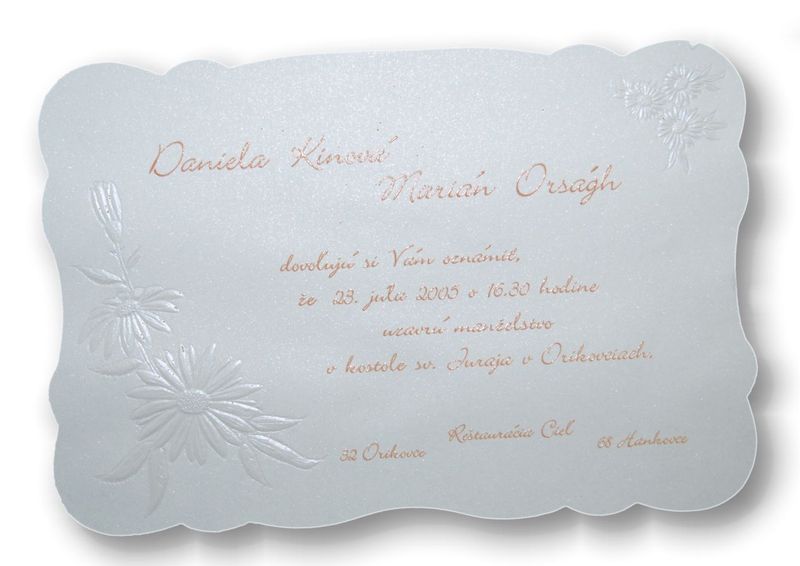 Daniela Kinová
Marián Orságh
dovoľujú si Vám oznámiť,
že 23. júla 2005 o 16.30 hodine
uzavrú manželstvo
v kostole sv. Juraja v Orikovciach.
Reštaurácia Cieľ
32 Orikovce
68 Hankovce